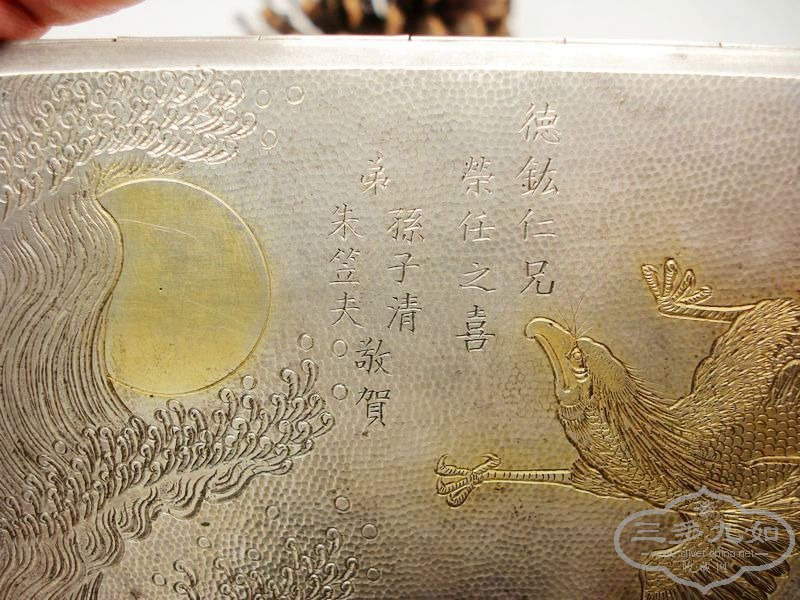 德鈜仁兄
榮任之喜
弟
孫子清
朱笠夫
敬賀
三多九如
www.silver-china.net
收藏网